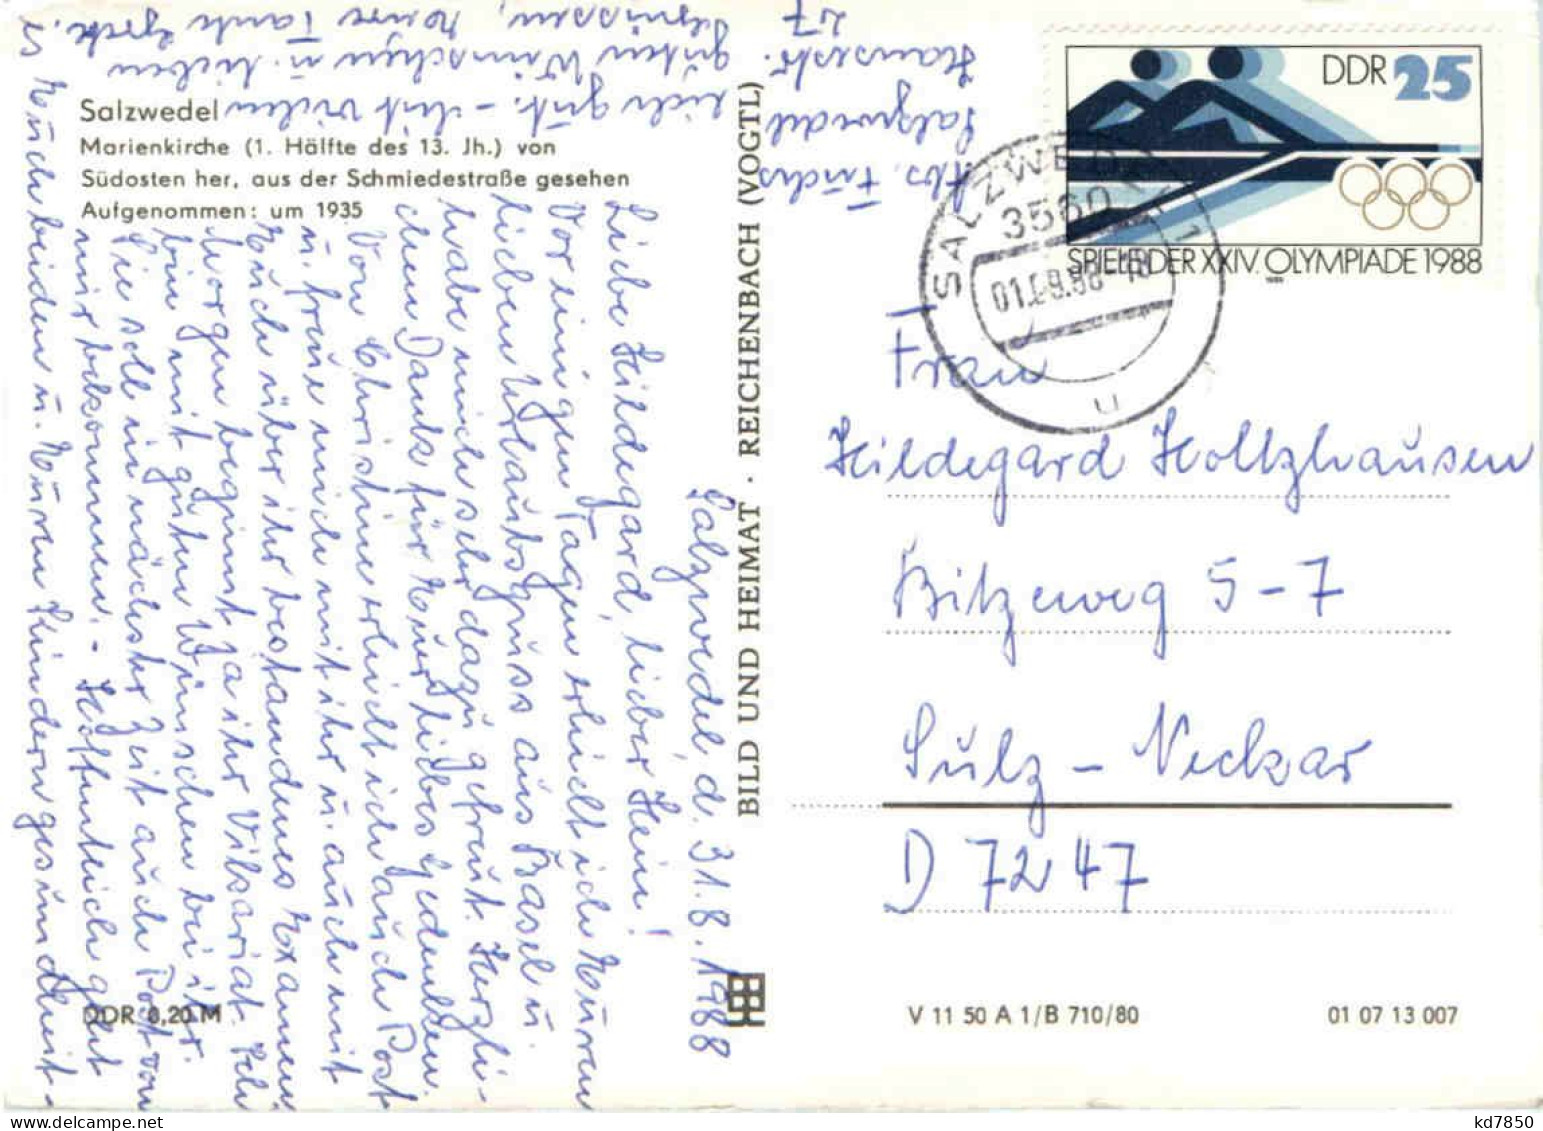 Salzwedel
Marienkirche (1. Hälfte des 13. Jh.) von
Südosten her, aus der Schmiedestraße gesehen
Aufgenommen: um 1935
Salzwedel, d. 31.8.1988
Liebe Hildegard, lieber Hein!
Vor einigen Tagen erhielt ich Euren
lieben Urlaubsgruss aus Basel u.
habe mich sehr dazu gefreut. Herzli-
chen Dank für Euer liebes Gedenken.
Von Christine erhielt ich auch Post
u. freue mich mit ihr u. auch mit
Euch über ihr bestandenes Examen.
Morgen beginnt ja ihr Vikariat. Ich
bin mit guten Wünschen bei ihr.
Sie soll in nächster Zeit auch Post von
mir bekommen. - Hoffentlich geht
es Euch beiden u. Euren Kindern gesundheit-
lich gut. - Mit vielen
guten Wünschen u. lieben
Grüssen, Eure Tante
Abs. Fuchs
Salzwedel
27
BILD UND HEIMAT · REICHENBACH (VOGTL)
DDR 25
SPIELE DER XXIV. OLYMPIADE 1988
SALZWEDEL 1
3560
01.09.88-18
u
Frau
Hildegard Holtzhausen
Bitzeweg 5-7
Sulz-Neckar
D 7247
DDR 0,20 M
V 11 50 A 1/B 710/80
01 07 13 007
kd7850